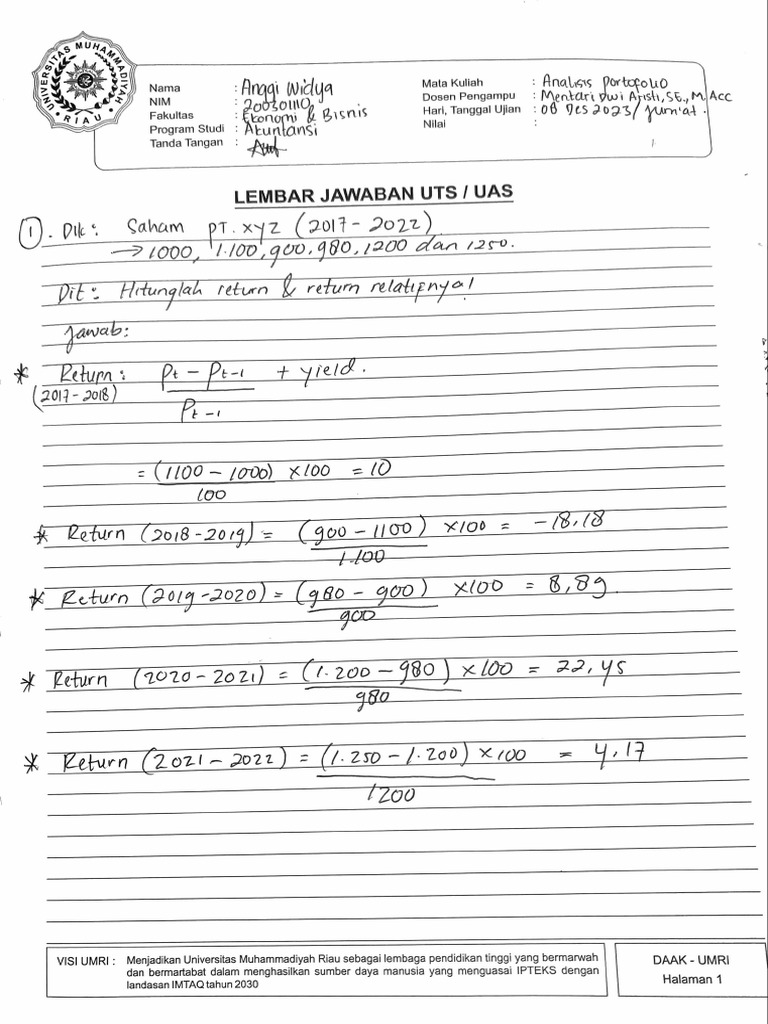 UNIVERSITAS MUHAMMADIYAH RIAU
Nama : Anggi Widya
NIM : 200301110
Fakultas : Ekonomi & Bisnis
Program Studi : Akuntansi
Tanda Tangan :
Mata Kuliah : Analisis Portofolio
Dosen Pengampu : Mentari Dwi Aristi, SE., M.Acc
Hari, Tanggal Ujian : 08 Des 2023 / Jum'at.
Nilai :
LEMBAR JAWABAN UTS / UAS
1. Dik: Saham PT. XYZ (2017 - 2022)
→ 1000, 1.100, 900, 980, 1200 dan 1250.
Dit: Hitunglah return & return relatifnya!
Jawab:
* Return: Pt - Pt-1 + yield.
(2017 - 2018)
Pt-1
= (1100 - 1000) x100 = 10
100
* Return (2018 - 2019) = (900 - 1100) x100 = -18,18
1.100
* Return (2019 - 2020) = (980 - 900) x100 = 8,89
900
* Return (2020 - 2021) = (1.200 - 980) x100 = 22,45
980
* Return (2021 - 2022) = (1.250 - 1.200) x100 = 4,17
1200
VISI UMRI : Menjadikan Universitas Muhammadiyah Riau sebagai lembaga pendidikan tinggi yang bermarwah
dan bermartabat dalam menghasilkan sumber daya manusia yang menguasai IPTEKS dengan
landasan IMTAQ tahun 2030
DAAK - UMRI
Halaman 1